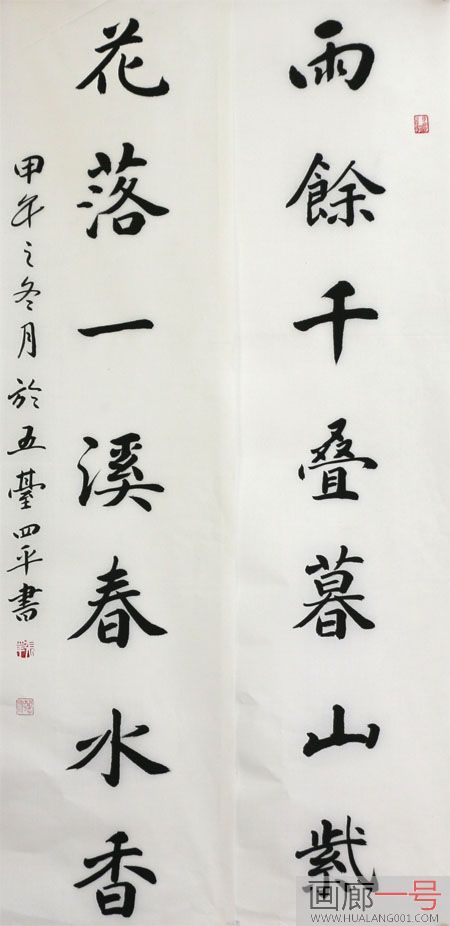 雨餘千叠暮山紫
花落一溪春水香
甲午之冬月於五臺四平書
画廊一号
WWW.HUALANG001.COM